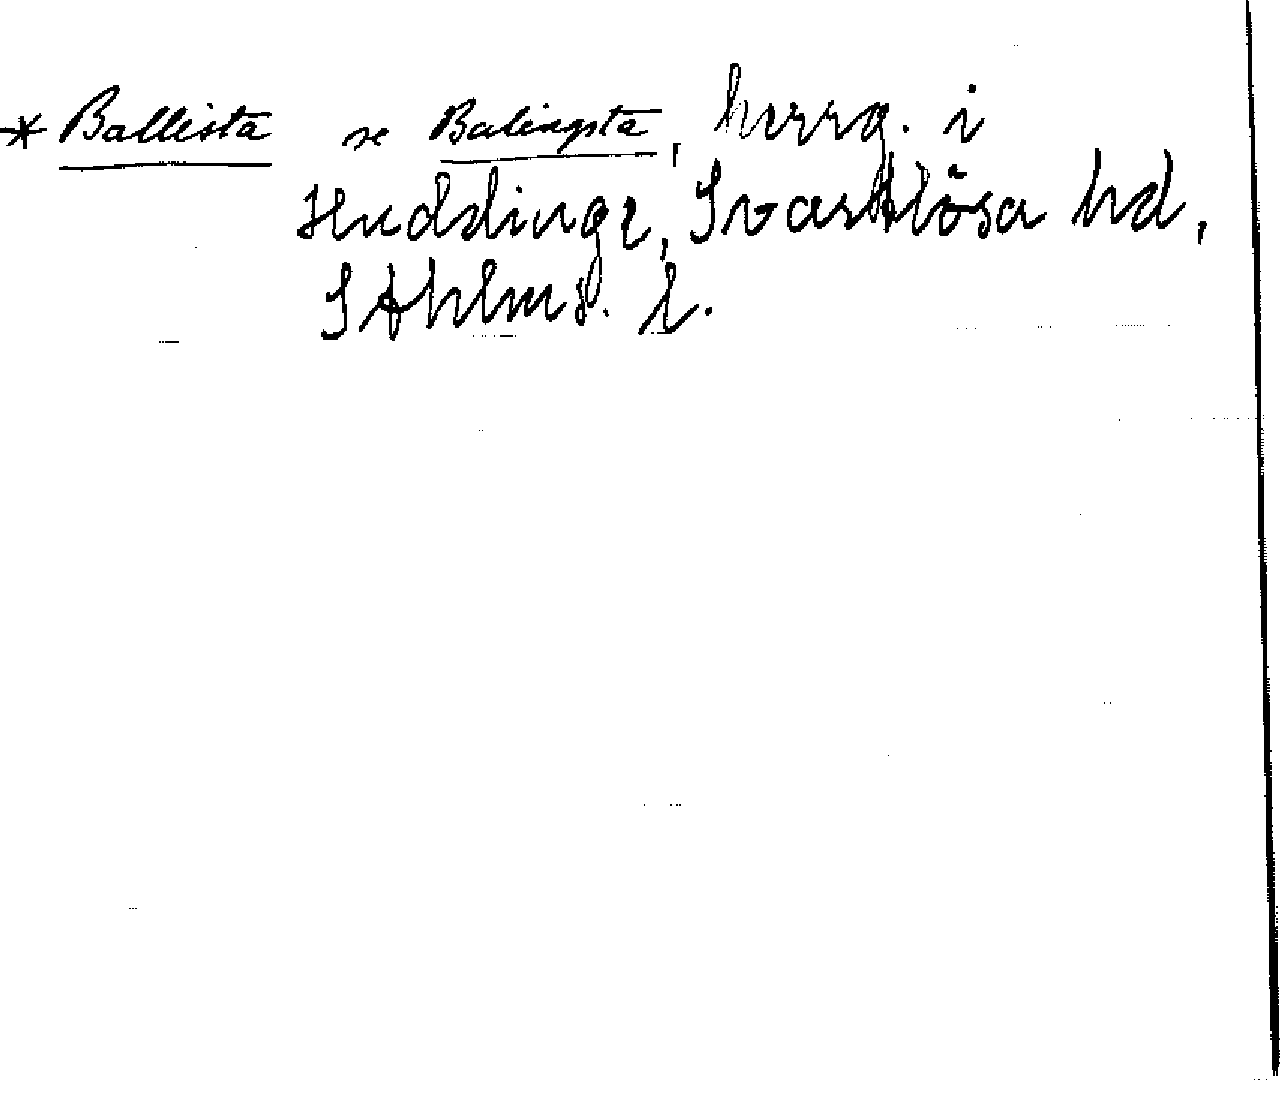 * Ballista se Balingsta, herrg. i
Huddinge, Svartlösa hd,
Sthlms. l.